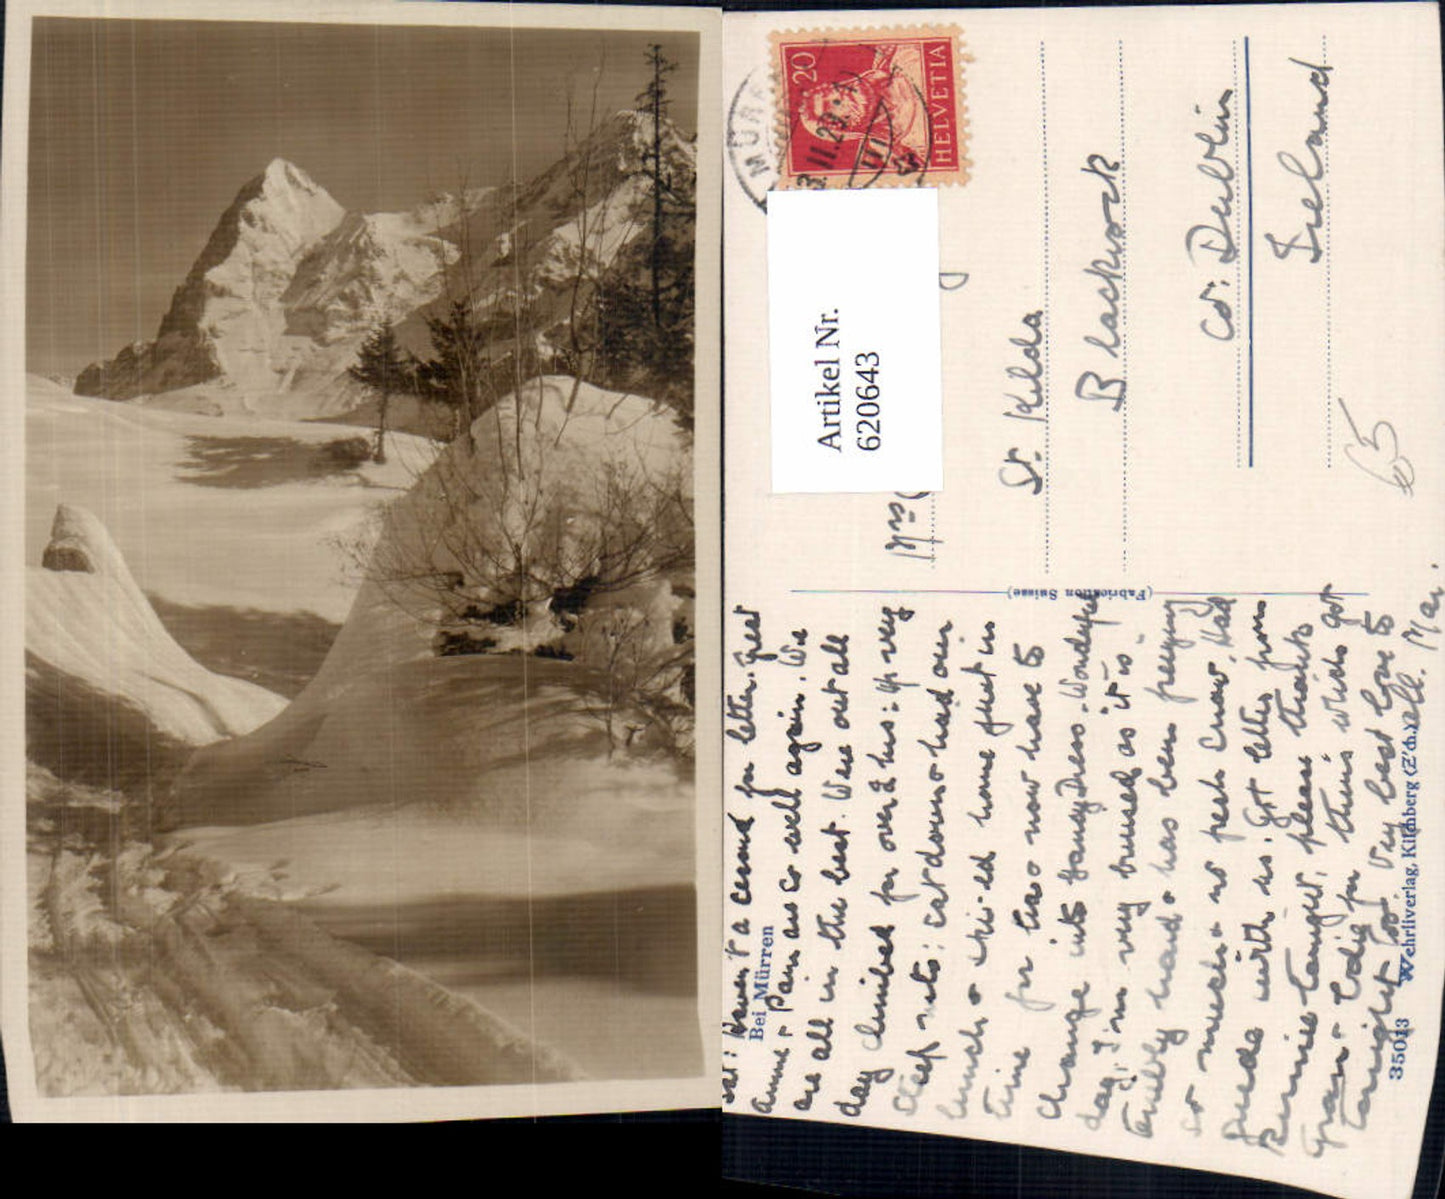 MÜRR
II.29.
20
HELVETIA
Artikel Nr.
620643
Mrs
St. Kilda
Blackrock
Co: Dublin
Ireland
65
(Fabrication Suisse)
Bei Mürren
35013 Wehrliverlag, Kilchberg (Z'ch.)
Sat: Haven't a second for letter. Great
Anne & Pam are so well again. We
are all in the best. Were out all
day climbed for over 2 hrs: up very
steep: sat down & had our
lunch & ski-ed home just in
time for tea & now have to
change into Fancy Dress. Wonderful
day. I'm very bruised as it is
terribly hard & has been freezing
so much & no fresh snow. Had
with us. Got letter from
please thank
Gran & Edie for theirs which got
tonight too Very best love to
all. Mai.